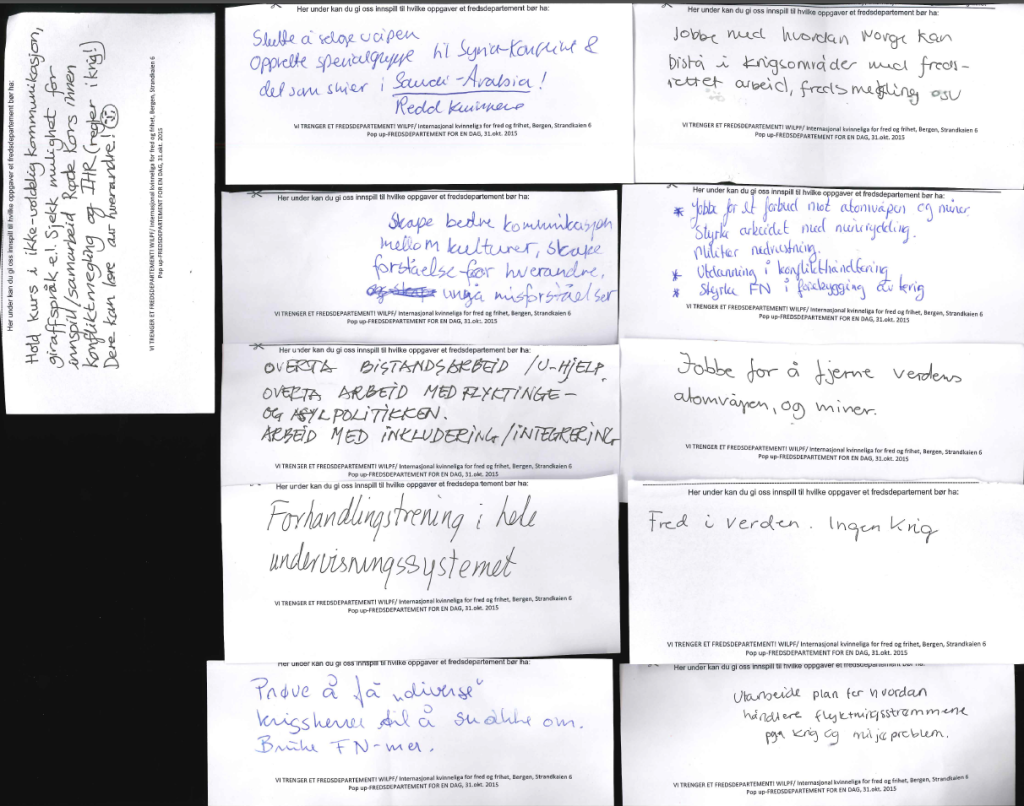 Her under kan du gi oss innspill til hvilke oppgaver et fredsdepartement bør ha:
Hold kurs i ikke-voldelig kommunikasjon,
giraffspråk e.l. Sjekk mulighet for
innspill/samarbeid Røde Kors innen
Konfliktmegling og IHR (regler i krig!)
Dere kan lære av hverandre! ☺
VI TRENGER ET FREDSDEPARTEMENT! WILPF/ Internasjonal kvinneliga for fred og frihet, Bergen, Strandkaien 6
Pop up-FREDSDEPARTEMENT FOR EN DAG, 31.okt. 2015
Her under kan du gi oss innspill til hvilke oppgaver et fredsdepartement bør ha:
Slutte å selge våpen
Opprette spesialgruppe til Syria-konflikt &
det som skjer i Saudi-Arabia!
Redd kvinnene
VI TRENGER ET FREDSDEPARTEMENT! WILPF/ Internasjonal kvinneliga for fred og frihet, Bergen, Strandkaien 6
Pop up-FREDSDEPARTEMENT FOR EN DAG, 31.okt. 2015
Her under kan du gi oss innspill til hvilke oppgaver et fredsdepartement bør ha:
Jobbe med hvordan Norge kan
bistå i krigsområder med freds-
rettet arbeid, fredsmegling osv
VI TRENGER ET FREDSDEPARTEMENT! WILPF/ Internasjonal kvinneliga for fred og frihet, Bergen, Strandkaien 6
Pop up-FREDSDEPARTEMENT FOR EN DAG, 31.okt. 2015
Her under kan du gi oss innspill til hvilke oppgaver et fredsdepartement bør ha:
Skape bedre komunikasjon
mellom kulturer, skape
forståelse for hverandre,
ungå misforståelser
VI TRENGER ET FREDSDEPARTEMENT! WILPF/ Internasjonal kvinneliga for fred og frihet, Bergen, Strandkaien 6
Pop up-FREDSDEPARTEMENT FOR EN DAG, 31.okt. 2015
Her under kan du gi oss innspill til hvilke oppgaver et fredsdepartement bør ha:
* Jobbe for et forbud mot atomvåpen og miner.
Styrke arbeidet med minerydding.
Militær nedrustning.
* Utdanning i konflikthåndtering
* Styrka FN i førebygging av krig
VI TRENGER ET FREDSDEPARTEMENT! WILPF/ Internasjonal kvinneliga for fred og frihet, Bergen, Strandkaien 6
Pop up-FREDSDEPARTEMENT FOR EN DAG, 31.okt. 2015
Her under kan du gi oss innspill til hvilke oppgaver et fredsdepartement bør ha:
OVERTA BISTANDSARBEID /U-HJELP.
OVERTA ARBEID MED FLYKTINGE-
OG ASYLPOLITIKKEN.
ARBEID MED INKLUDERING/INTEGRERING
VI TRENGER ET FREDSDEPARTEMENT! WILPF/ Internasjonal kvinneliga for fred og frihet, Bergen, Strandkaien 6
Pop up-FREDSDEPARTEMENT FOR EN DAG, 31.okt. 2015
Jobbe for å fjerne verdens
atomvåpen, og miner.
VI TRENGER ET FREDSDEPARTEMENT! WILPF/ Internasjonal kvinneliga for fred og frihet, Bergen, Strandkaien 6
Pop up-FREDSDEPARTEMENT FOR EN DAG, 31.okt. 2015
Her under kan du gi oss innspill til hvilke oppgaver et fredsdepartement bør ha:
Forhandlingstrening i hele
undervisningssystemet
VI TRENGER ET FREDSDEPARTEMENT! WILPF/ Internasjonal kvinneliga for fred og frihet, Bergen, Strandkaien 6
Pop up-FREDSDEPARTEMENT FOR EN DAG, 31.okt. 2015
Her under kan du gi oss innspill til hvilke oppgaver et fredsdepartement bør ha:
Fred i verden. Ingen Krig
VI TRENGER ET FREDSDEPARTEMENT! WILPF/ Internasjonal kvinneliga for fred og frihet, Bergen, Strandkaien 6
Pop up-FREDSDEPARTEMENT FOR EN DAG, 31.okt. 2015
Her under kan du gi oss innspill til hvilke oppgaver et fredsdepartement bør ha:
Prøve å få "diverse"
krigsherrer til å snakke om.
Bruke FN-mer.
VI TRENGER ET FREDSDEPARTEMENT! WILPF/ Internasjonal kvinneliga for fred og frihet, Bergen, Strandkaien 6
Pop up-FREDSDEPARTEMENT FOR EN DAG, 31.okt. 2015
Her under kan du gi oss innspill til hvilke oppgaver et fredsdepartement bør ha:
Utarbeide plan for hvordan
håndtere flyktningsstrømmene
pga krig og miljøproblem.
VI TRENGER ET FREDSDEPARTEMENT! WILPF/ Internasjonal kvinneliga for fred og frihet, Bergen, Strandkaien 6
Pop up-FREDSDEPARTEMENT FOR EN DAG, 31.okt. 2015